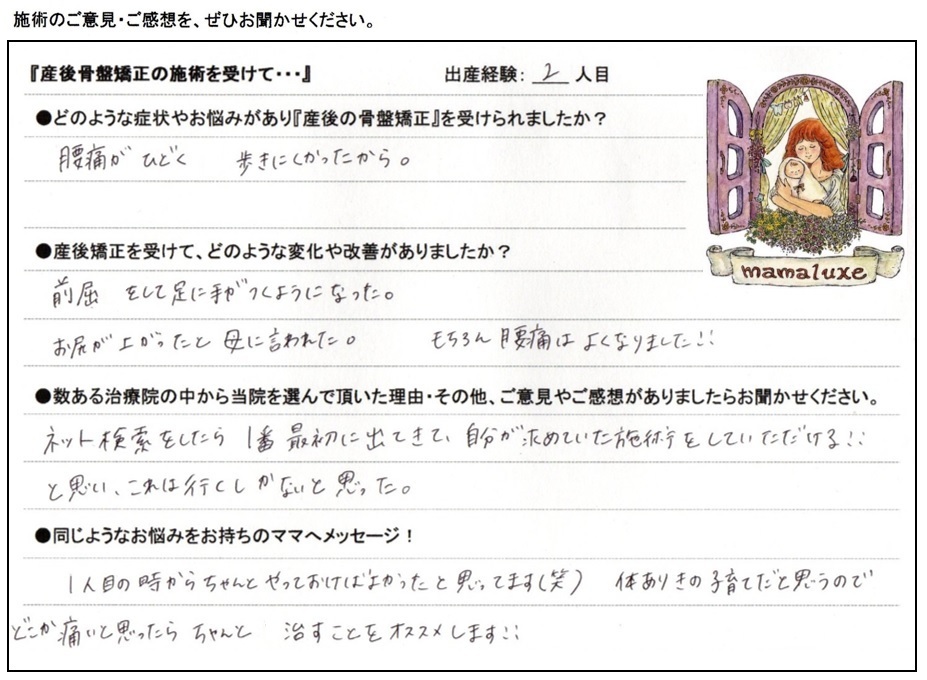 施術のご意見・ご感想を、ぜひお聞かせください。
『産後骨盤矯正の施術を受けて・・・』 出産経験： 2 人目
●どのような症状やお悩みがあり『産後の骨盤矯正』を受けられましたか？
腰痛が ひどく 歩きにくかったから。
●産後矯正を受けて、どのような変化や改善がありましたか？
mamaluxe
前屈 をして足に手がつくようになった。
お尻が上がったと母に言われた。 もちろん腰痛はよくなりました!!
●数ある治療院の中から当院を選んで頂いた理由・その他、ご意見やご感想がありましたらお聞かせください。
ネット検索をしたら 1番最初に出てきて、自分が求めていた施術をしていただける!!
と思い、これは行くしかないと思った。
●同じようなお悩みをお持ちのママへメッセージ！
1人目の時からちゃんとやっておけばよかったと思ってます(笑) 体ありきの子育てだと思うので
どこか痛いと思ったらちゃんと 治すことをオススメします!!